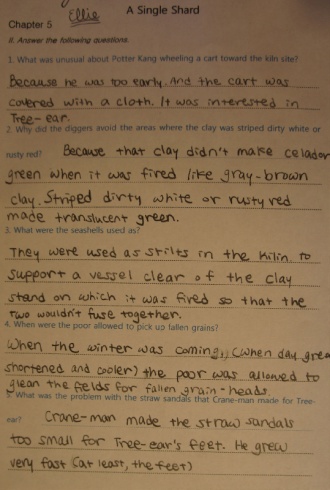 Ellie
A Single Shard
Chapter 5
II. Answer the following questions.
1. What was unusual about Potter Kang wheeling a cart toward the kiln site?
Because he was too early. And the cart was
covered with a cloth. It was interested in
Tree-ear.
2. Why did the diggers avoid the areas where the clay was striped dirty white or
rusty red? Because that clay didn't make celadon
green when it was fired like gray-brown
clay. Striped dirty white or rusty red
made translucent green.
3. What were the seashells used as?
They were used as stilts in the kilin to
support a vessel clear of the clay
stand on which it was fired so that the
two wouldn't fuse together.
4. When were the poor allowed to pick up fallen grains?
When the winter was coming, (when day grew
shortened and cooler) the poor was allowed to
glean the fields for fallen grain-heads
5. What was the problem with the straw sandals that Crane-man made for Tree-
ear? Crane-man made the straw sandals
too small for Tree-ear's feet. He grew
very fast (at least, the feet)